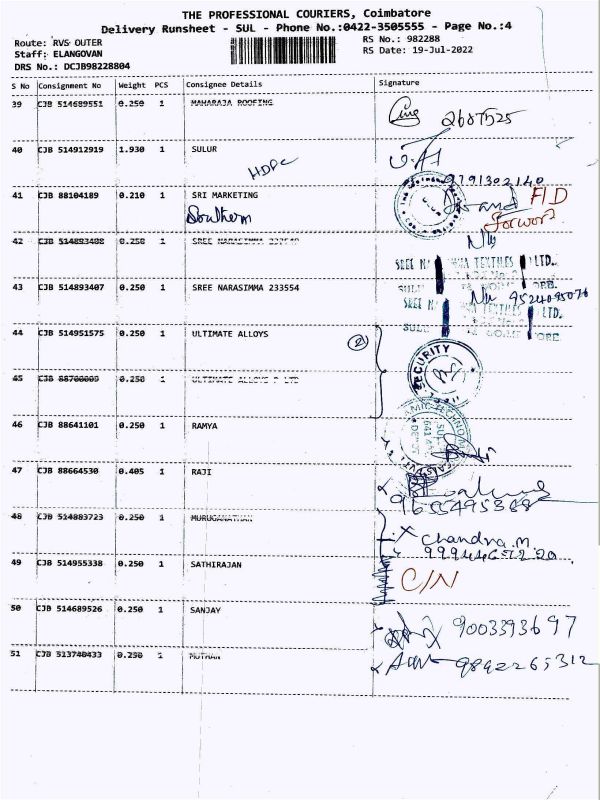 THE PROFESSIONAL COURIERS, Coimbatore
Delivery Runsheet - SUL - Phone No.:0422-3505555 - Page No.:4
Route: RVS OUTER RS No.: 982288
Staff: ELANGOVAN RS Date: 19-Jul-2022
DRS No.: DCJB98228804
S No Consignment No Weight PCS Consignee Details Signature
39 CJB 514689551 0.250 1 MAHARAJA ROOFING
40 CJB 514912919 1.930 1 SULUR
HDPC
9791302140
41 CJB 88104189 0.210 1 SRI MARKETING
Southern
FID
42 CJB 514893408 0.250 1 SREE NARASIMMA 233549
TEXTILES LTD.
43 CJB 514893407 0.250 1 SREE NARASIMMA 233554
44 CJB 514951575 0.250 1 ULTIMATE ALLOYS
2
SECURITY
45 CJB 88700009 0.250 1 ULTIMATE ALLOYS P LTD
46 CJB 88641101 0.250 1 RAMYA
47 CJB 88664530 0.405 1 RAJI
9655495368
48 CJB 514883723 0.250 1 MURUGANATHAN
Chandra.M
49 CJB 514955338 0.250 1 SATHIRAJAN
C/N
50 CJB 514689526 0.250 1 SANJAY
9003393697
51 CJB 513740433 0.250 1 MUTHAN
9842265312